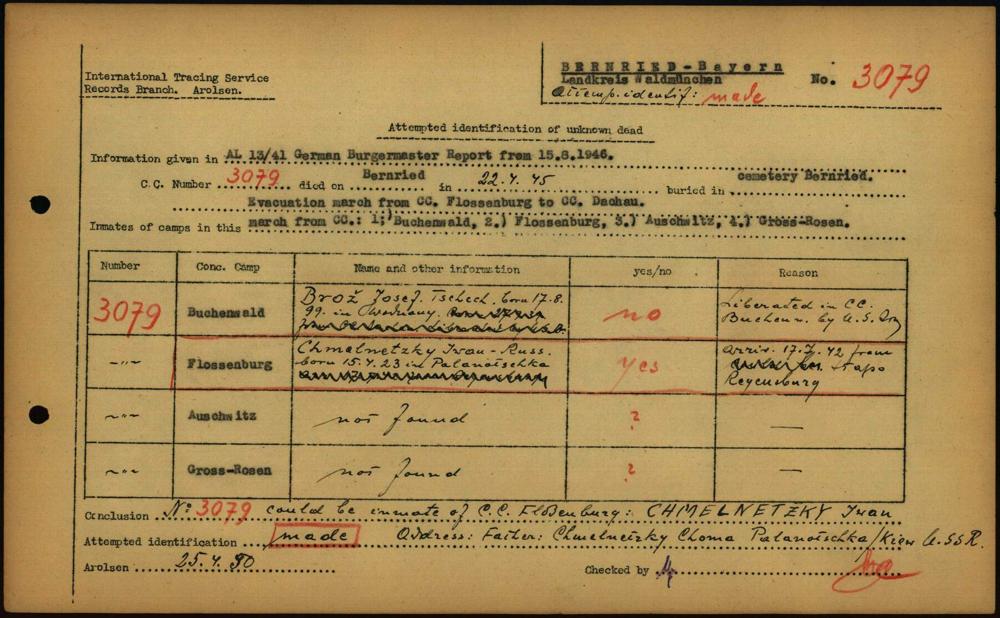 International Tracing Service
Records Branch. Arolsen.
BERNRIED-Bayern
Landkreis Waldmünchen
No. 3079
Attemp. identif: made
Attempted identification of unknown dead
Information given in AL 13/41 German Burgermaster Report from 15.8.1946.
C.C. Number 3079 died on Bernried in 22.4.45 buried in cemetery Bernried.
Evacuation march from CC. Flossenburg to CC. Dachau.
Inmates of camps in this march from CC.: 1.) Buchenwald, 2.) Flossenburg, 3.) Auschwitz, 4.) Gross-Rosen.
Number Conc. Camp Name and other information yes/no Reason
3079 Buchenwald Brož Josef. Tschech. born 17.8.
99. in
no
Liberated in CC.
Buchenw. by U.S.
-"- Flossenburg Chmelnetzky Iwan - Russ.
born 15.4.23 in Palanotschka
yes
arriv. 17.7.42 from
Stapo
Regensburg
-"- Auschwitz not found ? —
-"- Gross-Rosen not found ? —
Conclusion No 3079 could be inmate of C.C. Floßenburg: CHMELNETZKY Iwan
Attempted identification made Address: Father: Chmelnetzky Choma Palanotschka/Kiew U.SSR.
Arolsen 25.4.50 Checked by